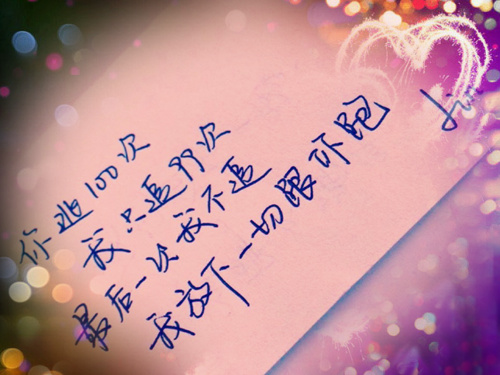 你逃100次
我只追99次
最后一次我不追
我放下一切跟你跑